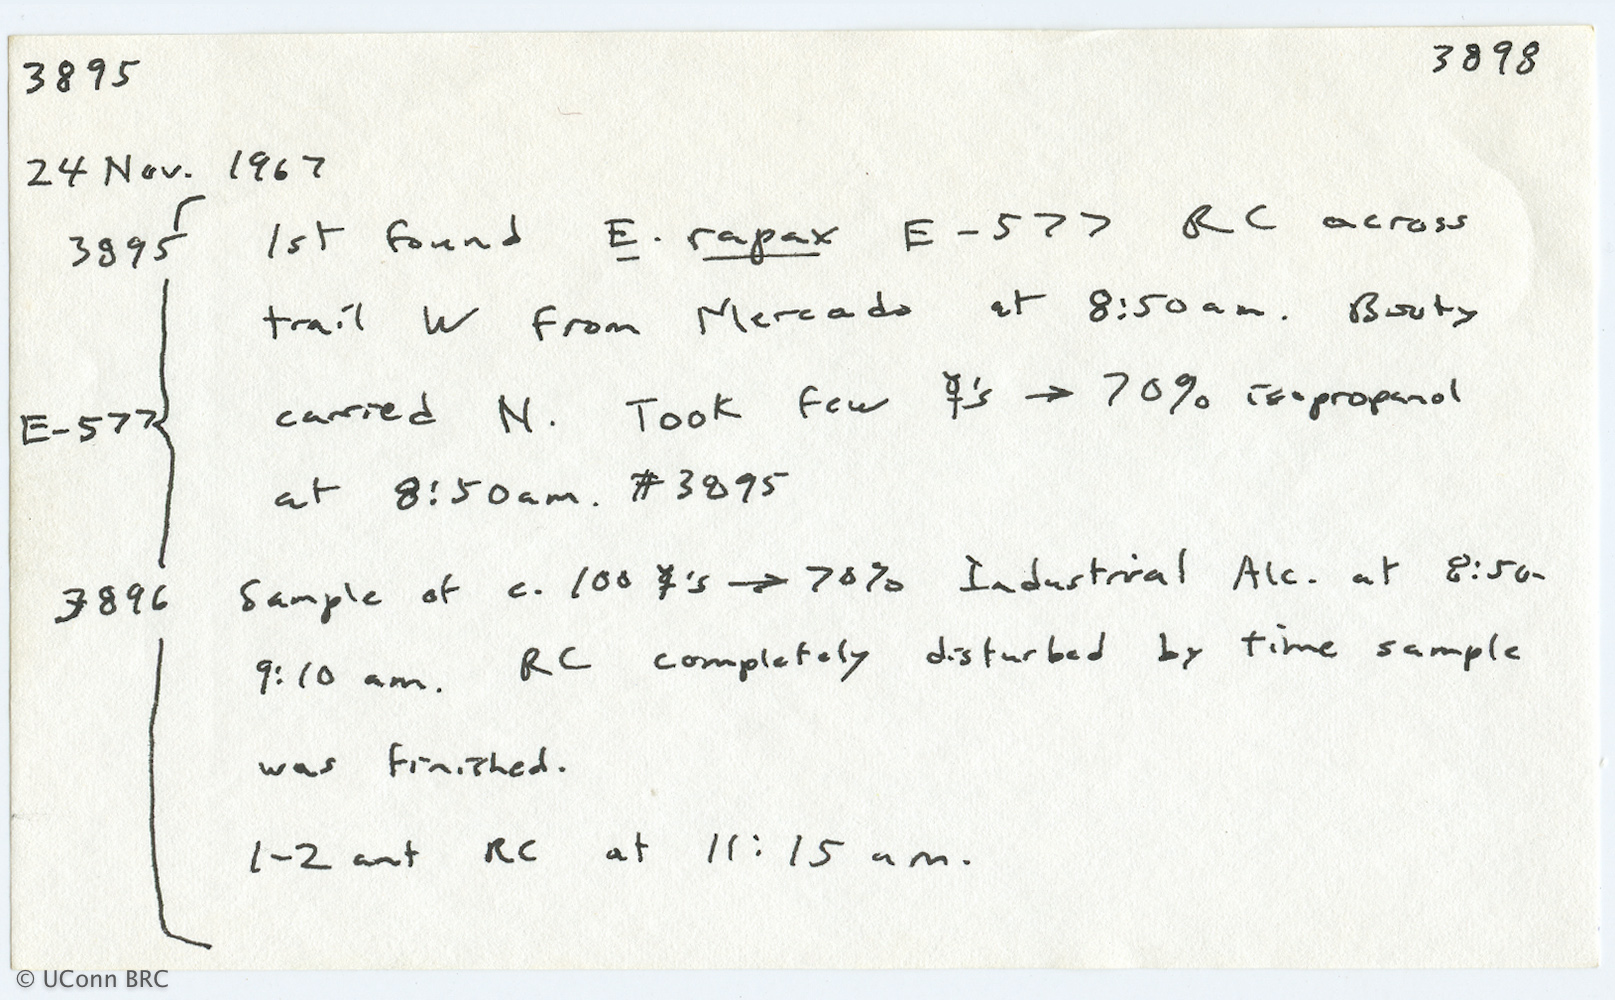 3895 3898
24 Nov. 1967
3895 1st found E. rapax E-577 RC across
trail W from Mercado at 8:50 am. Booty
E-577 carried N. Took few ☿'s → 70% isopropanol
at 8:50am. #3895
3896 Sample of c. 100 ☿'s → 70% Industrial Alc. at 8:50-
9:10 am. RC completely disturbed by time sample
was finished.
1-2 ant RC at 11:15 am.
© UConn BRC